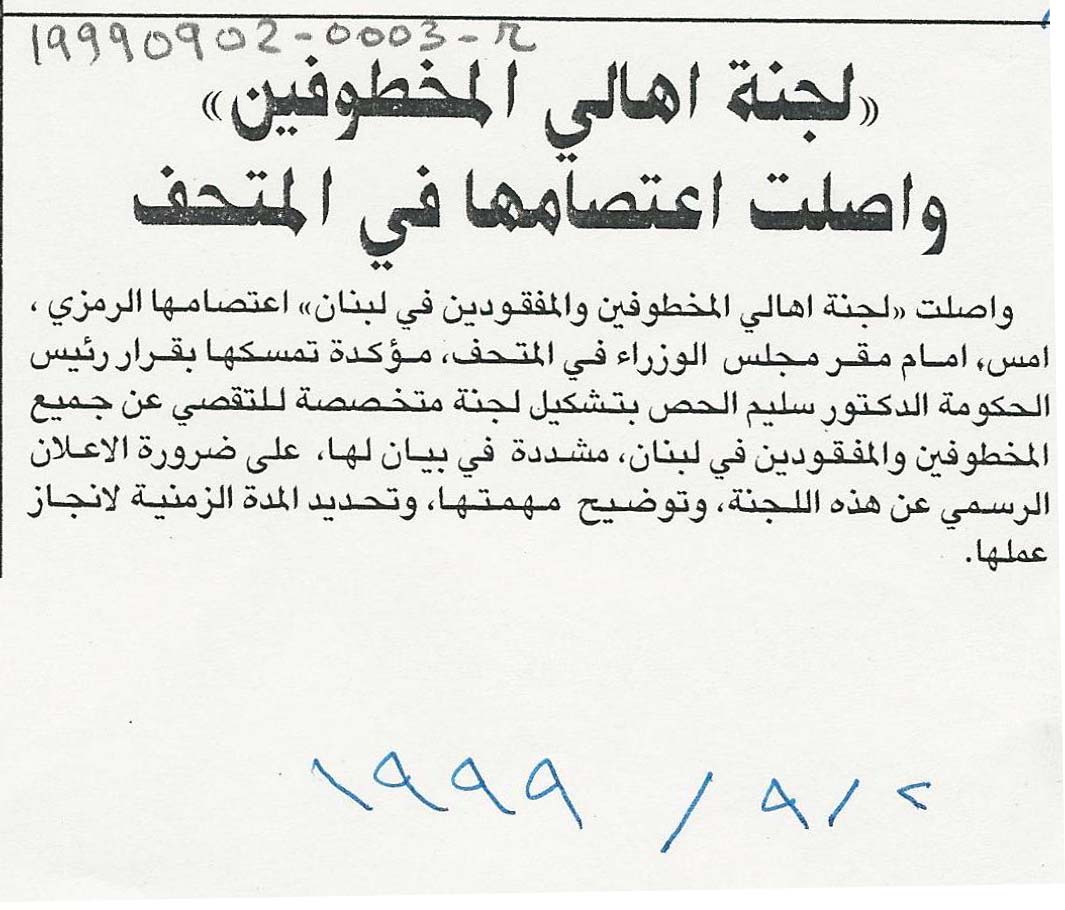 19990902-0003-r
«لجنة اهالي المخطوفين»
واصلت اعتصامها في المتحف
واصلت «لجنة اهالي المخطوفين والمفقودين في لبنان» اعتصامها الرمزي ،
امس، امام مقر مجلس الوزراء في المتحف، مؤكدة تمسكها بقرار رئيس
الحكومة الدكتور سليم الحص بتشكيل لجنة متخصصة للتقصي عن جميع
المخطوفين والمفقودين في لبنان، مشددة في بيان لها، على ضرورة الاعلان
الرسمي عن هذه اللجنة، وتوضيح مهمتها، وتحديد المدة الزمنية لانجاز
عملها.
٢ / ٩ / ١٩٩٩